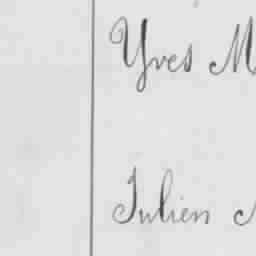 Yves M
Julien